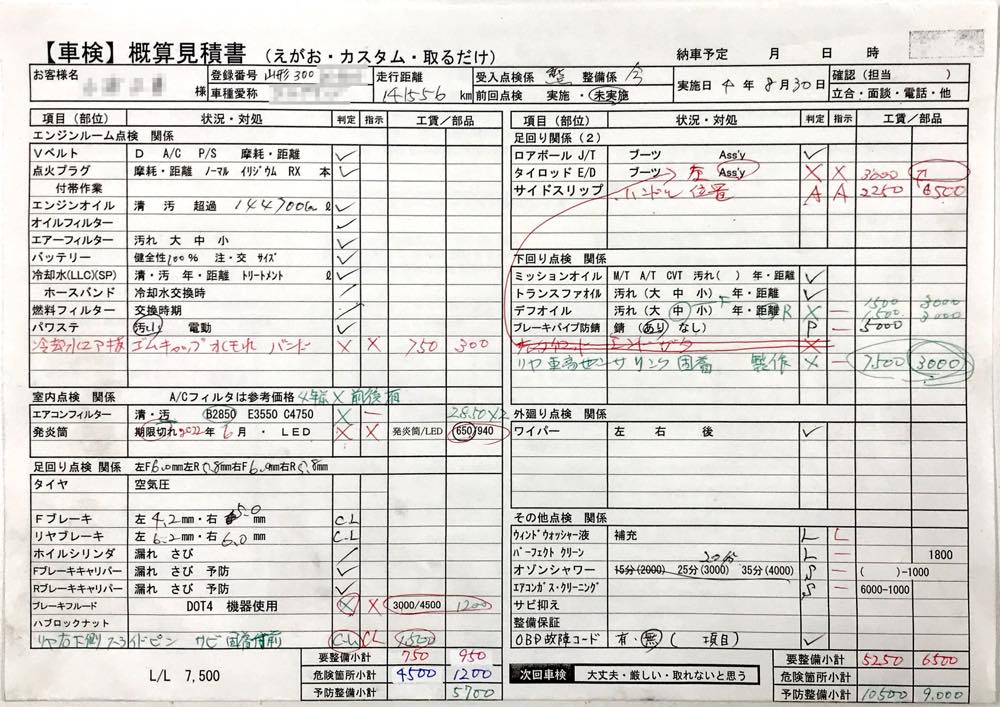 【車検】概算見積書 (えがお・カスタム・取るだけ) 納車予定 月 日 時
お客様名 様 登録番号 山形 300 車種愛称 走行距離 141556 km 受入点検係 整備係 前回点検 実施・未実施 実施日 4年 8月30日 確認(担当 ) 立合・面談・電話・他
項目(部位) 状況・対処 判定 指示 工賃/部品
エンジンルーム点検 関係
Vベルト D A/C P/S 摩耗・距離
点火プラグ 摩耗・距離 ノーマル イリジウム RX 本
付帯作業
エンジンオイル 清 汚 超過 144700km ℓ
オイルフィルター
エアーフィルター 汚れ 大 中 小
バッテリー 健全性100% 注・交 サイズ
冷却水(LLC)(SP) 清・汚 年・距離 トリートメント ℓ
ホースバンド 冷却水交換時
燃料フィルター 交換時期
パワステ 汚れ 電動
冷却水エア抜 ゴムキャップ水もれ バンド × × 750 300
室内点検 関係 A/Cフィルタは参考価格
エアコンフィルター 清・汚 B2850 E3550 C4750 × ー 2850×2
発炎筒 期限切れ2022年6月・LED × × 発炎筒/LED 650/940
足回り点検 関係 左F6.0mm左R5.8mm右F6.0mm右R5.8mm
タイヤ 空気圧
Fブレーキ 左 4.2mm・右 5.0mm C-L
リヤブレーキ 左 6.2mm・右 6.0mm C-L
ホイルシリンダ 漏れ さび
Fブレーキキャリパー 漏れ さび 予防
Rブレーキキャリパー 漏れ さび 予防
ブレーキフルード DOT4 機器使用 × × 3000/4500 1200
ハブロックナット
リヤ右下側スライドピン サビ固着寸前 C-L CL 1500
L/L 7,500
要整備小計 750 950
危険箇所小計 4500 1200
予防整備小計 5700
項目(部位) 状況・対処 判定 指示 工賃/部品
足回り関係(2)
ロアボールJ/T ブーツ Ass'y
タイロッドE/D ブーツ 左 Ass'y × × 3000
サイドスリップ ハンドル位置 A A 2250 6500
下回り点検 関係
ミッションオイル M/T A/T CVT 汚れ( ) 年・距離
トランスファオイル 汚れ(大 中 小) 年・距離
デフオイル 汚れ(大 中 小) 年・距離 R × ー 1500 3000 1500 3000
ブレーキパイプ防錆 錆(あり なし) P ー 5000
リヤ車高センサリンク固着 製作 × ー 7500 3000
外廻り点検 関係
ワイパー 左 右 後
その他点検 関係
ウィンドウォッシャー液 補充 L L
パーフェクト クリーン L ー 1800
オゾンシャワー 15分(2000) 25分(3000) 35分(4000) 20分 S ー ( )-1000
エアコンガス・クリーニング S ー 6000-1000
サビ抑え
整備保証
OBD故障コード 有・無( 項目)
次回車検 大丈夫・厳しい・取れないと思う
要整備小計 5250 6500
危険箇所小計
予防整備小計 10500 9,000